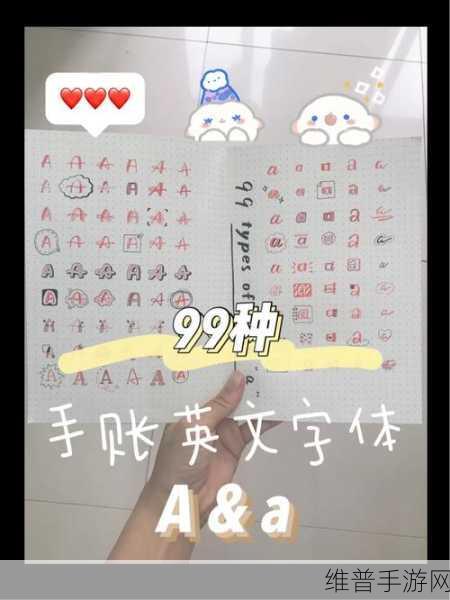 A A A A A A
A A A A A A
A A A A A A
A A A A A A
A A A A A A
A A A A A A
A A A A A A
A A A A A A
A A A A A A
99 types of "a"
a a a a a
a a a a a
a a a a a
a a a a a
a a a a a
a a a a a
a a a a a
a a a a a
a a a a a
99种
手账英文字体
A&a
维普手游网